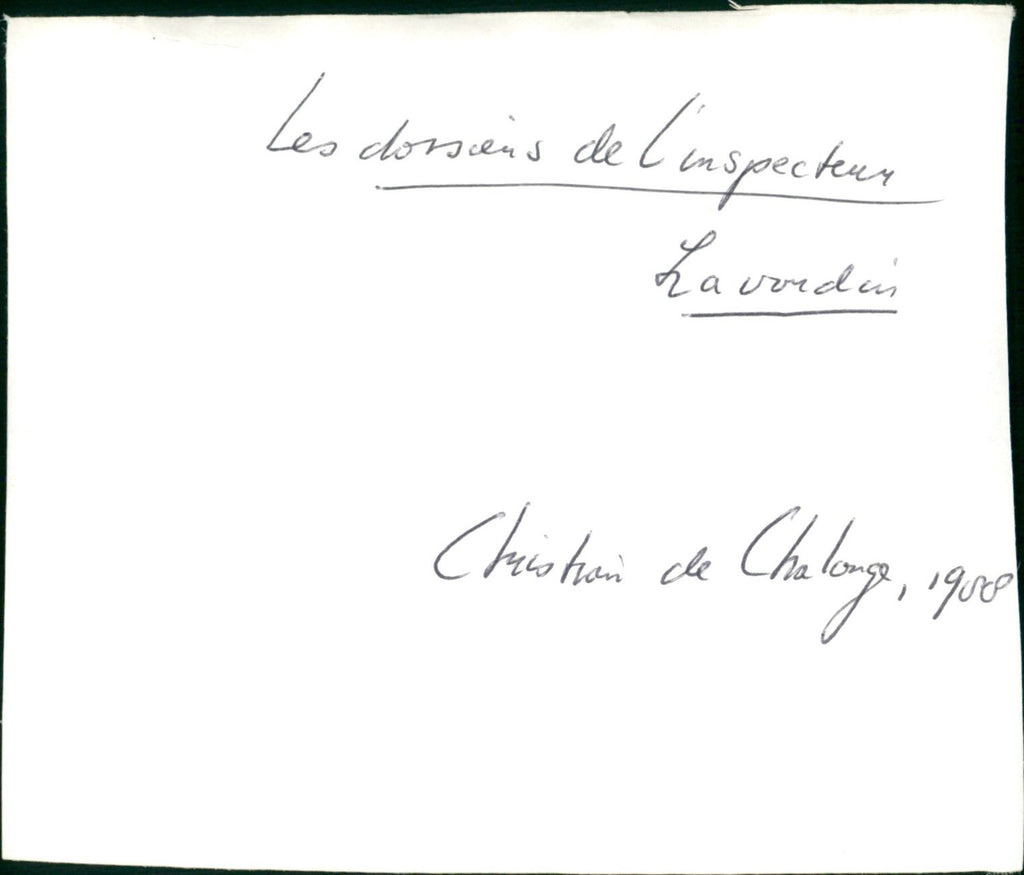 Les dossiers de l'inspecteur
Lavardin
Christian de Chalonge, 1988